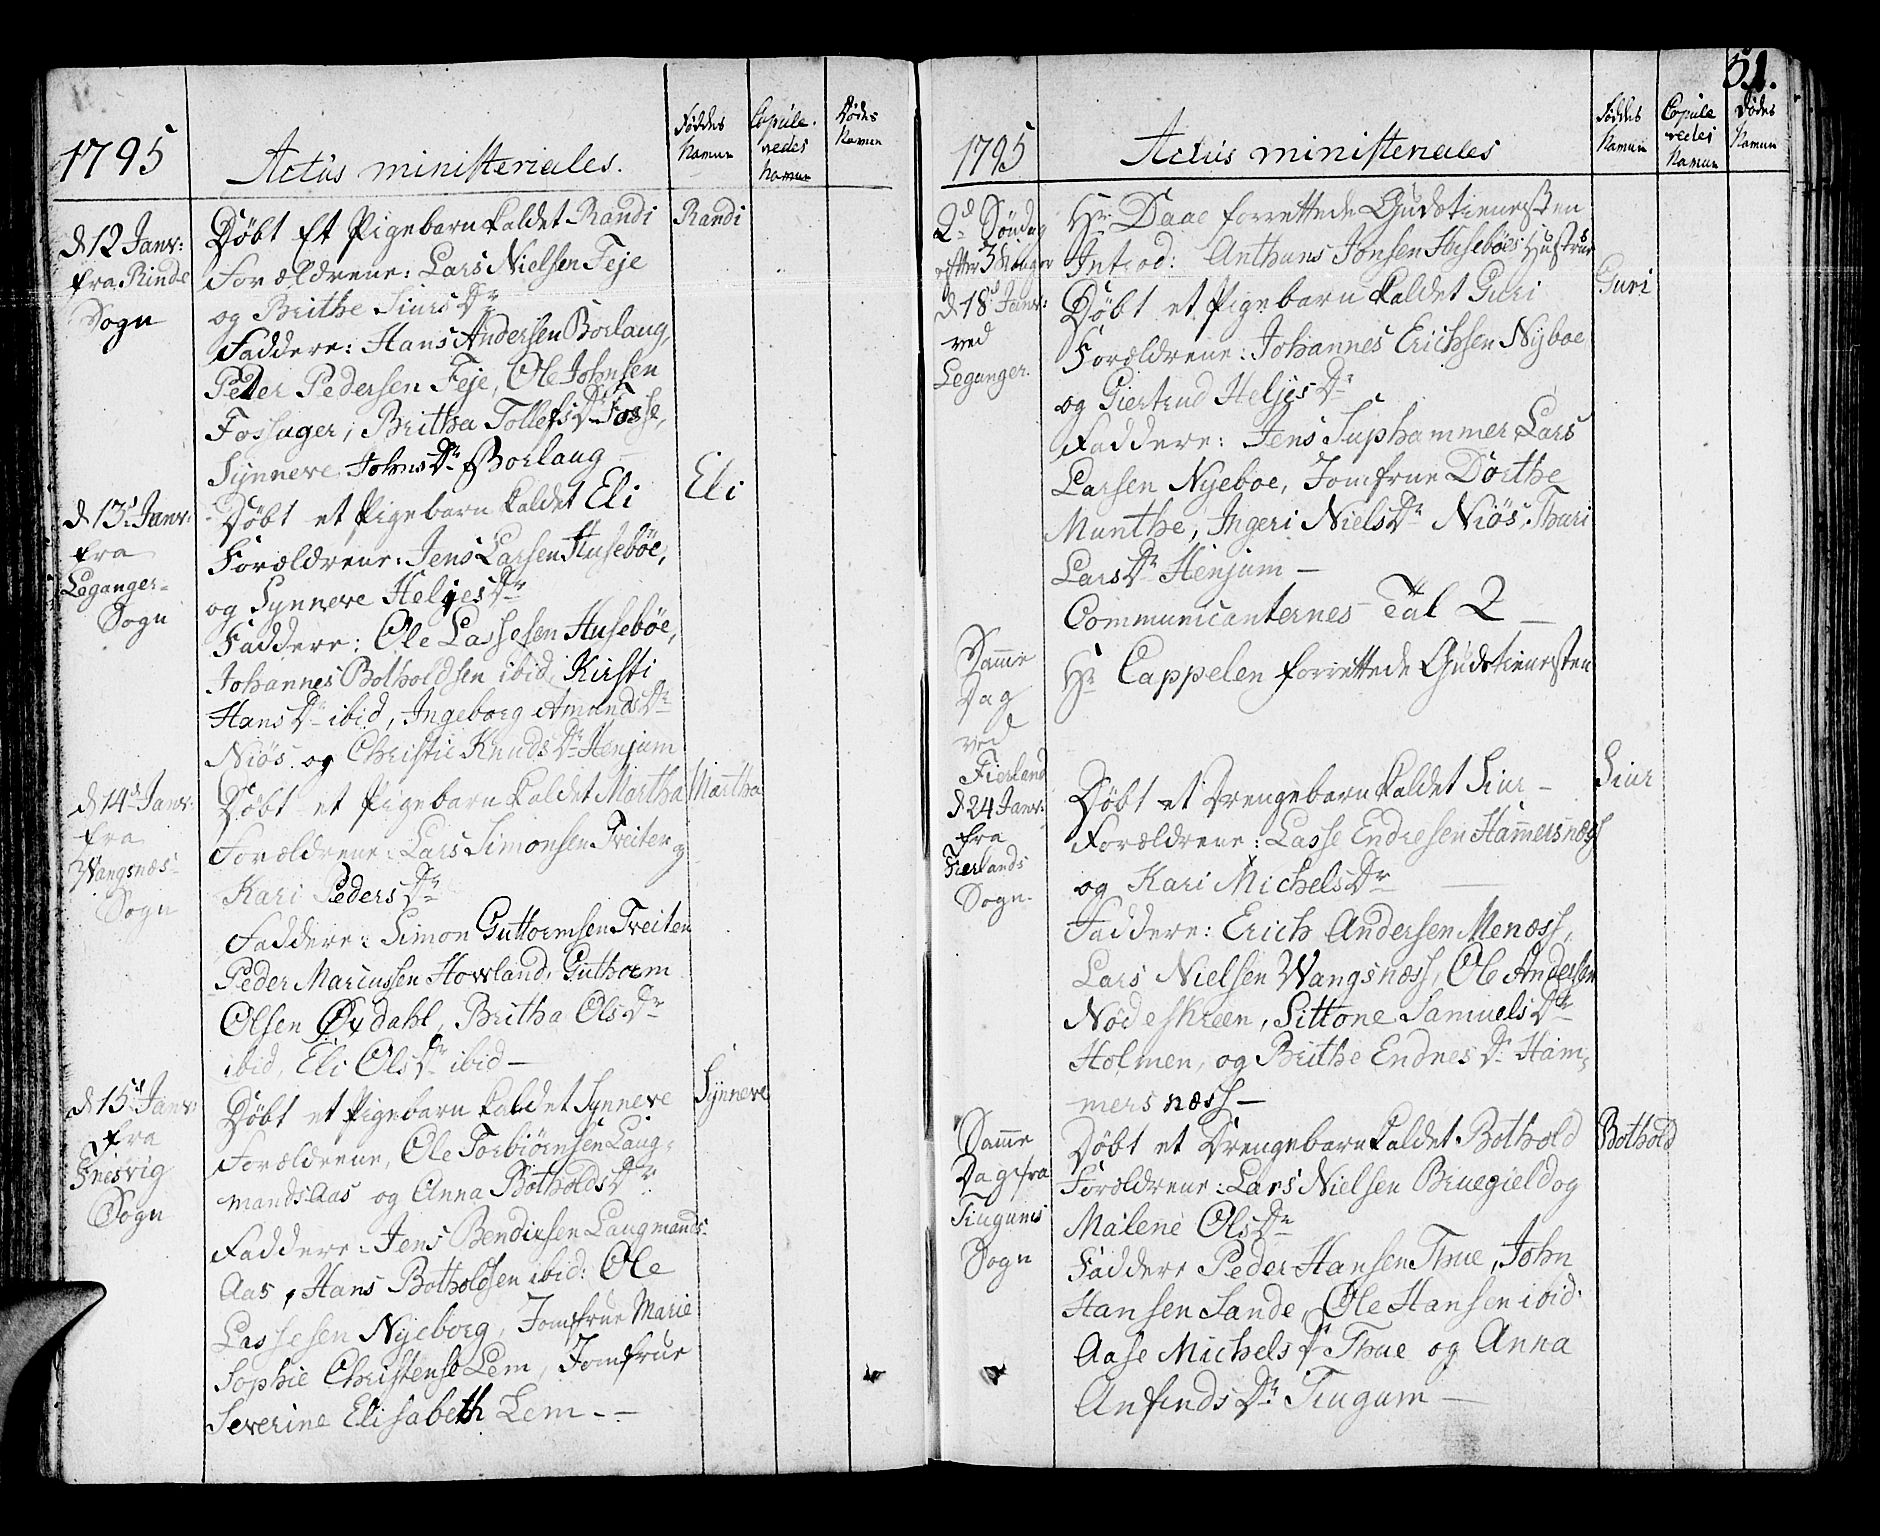 1795
Actus ministeriales.
Føddes Namen
Copule-redes Namen
Dødes Namen
d 12 Janv:
fra Rinde
Sogn
Døbt Et Pigebarn kaldet Randi
Randi
Forældrene: Lars Nielsen Feje
og Brithe Siurs Dr
Faddere: Hans Andersen Borlaug,
Peder Pedersen Feje, Ole Johnsen
Fossager, Britha Tollefs Dr Fosse,
Synneve Johns Dr Borlaug
d 13 Janv:
fra
Leganger-
Sogn
Døbt et Pigebarn kaldet Eli
Eli
Forældrene: Jens Larsen Husebøe,
og Synneve Heljes Dr
Faddere: Ole Lassesen Husebøe,
Johannes Botholdsen ibid, Kirsti
Hans Dr ibid, Ingeborg Amunds Dr
Niøs og Christie Knuds Dr Henjum
d 14 Janv:
fra
Wangsnæs-
Sogn
Døbt et Pigebarn kaldet Martha
Martha
Forældrene: Lars Simonsen Tveiten og
Kari Peders Dr
Faddere: Simon Guttormsen Tveiten
Peder Marcussen Howland, Guthorm
Olsen Øvdahl, Britha Ols Dr
ibid, Eli Ols Dr ibid —
d 15 Janv:
fra
Fresvig
Sogn
Døbt et Pigebarn kaldet Synneve
Synneve
Forældrene, Ole Torbiørnsen Laug-
mands Aas og Anna Botholds Dr
Faddere: Jens Bendixsen Laugmands-
Aas, Hans Botholdsen ibid: Ole
Lassesen Nyeborg, Jomfrue Marie
Sophie Christense Lem, Jomfrue
Severine Elisabeth Lem. —
51.
1795
Actus ministeriales
Føddes Namen
Copule redes Namen
Dødes Namen
2d Søndag
efter 3 Konger
d 18 Janv:
ved
Leganger.
Hr Daae forrettede Gudstienesten
Introd: Anthuns Jonsen Husebøes Hustrue
Døbt et Pigebarn kaldet Guri
Guri
Forældrene: Johannes Erichsen Nyboe
og Giertrud Heljes Dr
Faddere: Jens Suphammer, Lars
Larsen Nyeboe, Jomfrue Dorthe
Munthe, Ingeri Niels Dr Niøs, Thuri
Lars Dr Henjum —
Communicanternes Tal 2 —
Samme
Dag
ved
Fierland
Hr Cappelen forrettede Gudstienesten
d 24 Janv:
fra
Fierlands
Sogn.
Døbt et Drengebarn kaldet Siur —
Siur
Forældrene: Lasse Endresen Hammersnæss
og Kari Michels Dr
Faddere: Erich Andersen Menæss,
Lars Nielsen Wangsnæss, Ole Andersen
Nødeskreen, Sittone Samuels Dr
Holmen, og Brithe Endres Dr Ham-
mersnæss —
Samme
Dag fra
Tiugums
Sogn
Døbt et Drengebarn kaldet Bothold
Bothold
Forældrene: Lars Nielsen Bruegield og
Malene Ols Dr
Faddere Peder Hansen Thue, John
Hansen Sande, Ole Hansen ibid.
Aase Michels Dr Thue og Anna
Anfinds Dr Tiugum —